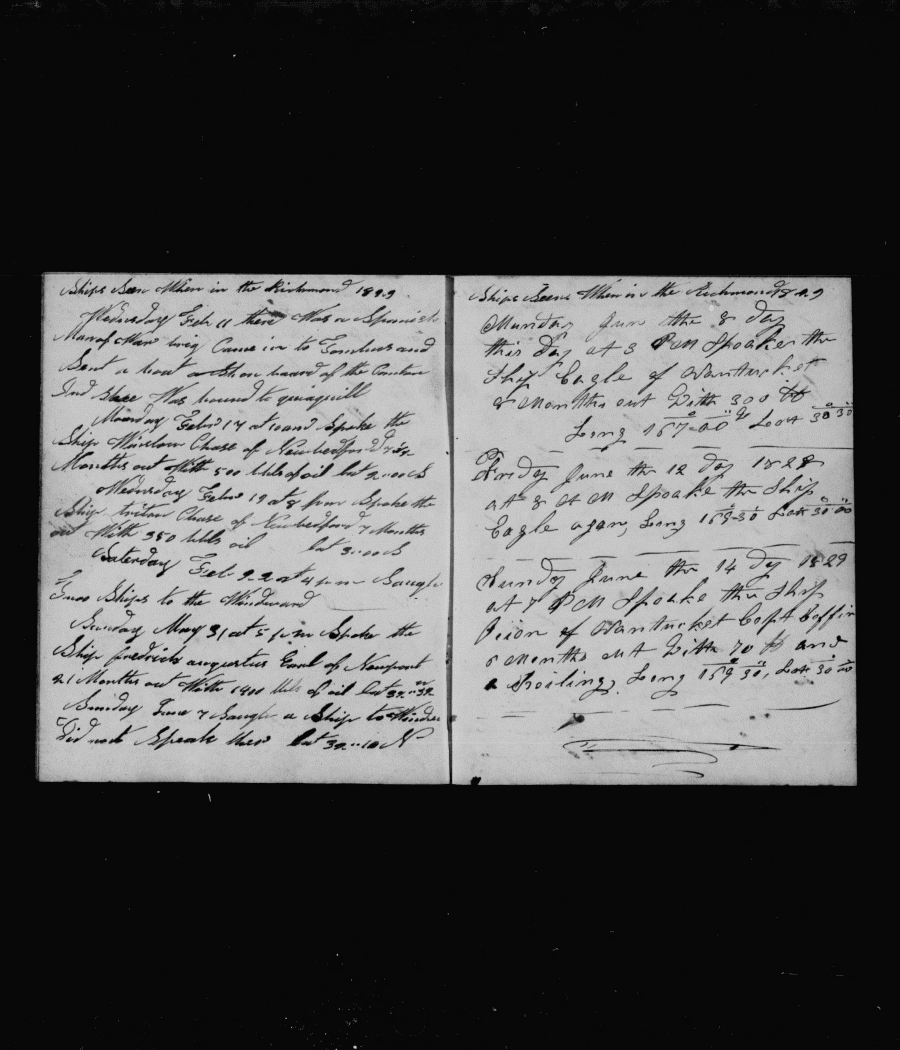 Ships Seen When in the Richmond 1829
Wedensday Feb 11 there Was a Spanish
Man of War brig Came in to Tombus and
Sent a boat a Shore
And Shee Was bound to
Monday Feb 17 at 10 and Spoke the
Ship Winslow Chase of Newbedford
Months out With 500 bbls of oil lat 2..00 S
Wedensday Feb 19 at 8 pm Spoke the
Ship triton Chase of Newbedford 7 Months
out With 350 bbls oil lat 3..00 S
Saterday Feb 22 at 4 pm Saugh
Two Ships to the Windward
Sunday May 31 at 5 pm Spoke the
Ship fredrick augustus Earl of Newport
21 Months out With 1400 bbls of oil lat 32..32
Sunday June 7 Saugh a Ship to
Did not Speak them lat 32..10 N
Ships Seen When in the Richmond 1829
Munday Jun the 8 day
this Day at 3 PM Spoake the
Ship Eagle of Nantucket
8 Months out With 300
Long 167-00 Lat 30 30
Friday June the 12 day 1829
at 8 AM Spoake the Ship
Eagle agan, Long 159-30 Lat 30 00
Sunday June the 14 Dy 1829
at 7 PM Spoake the Ship
of Nantucket Capt Coffin
8 Months out With 70 and
a Boiling, Long 159 30, Lat 30 00